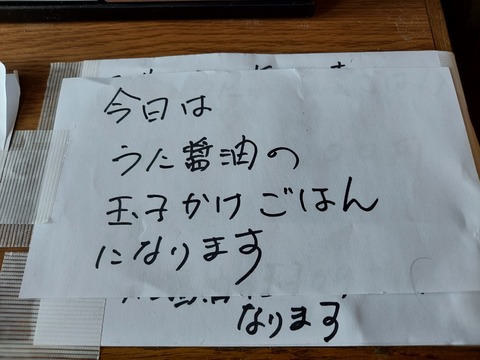 今日は
うた醤油の
玉子かけごはん
になります
なります